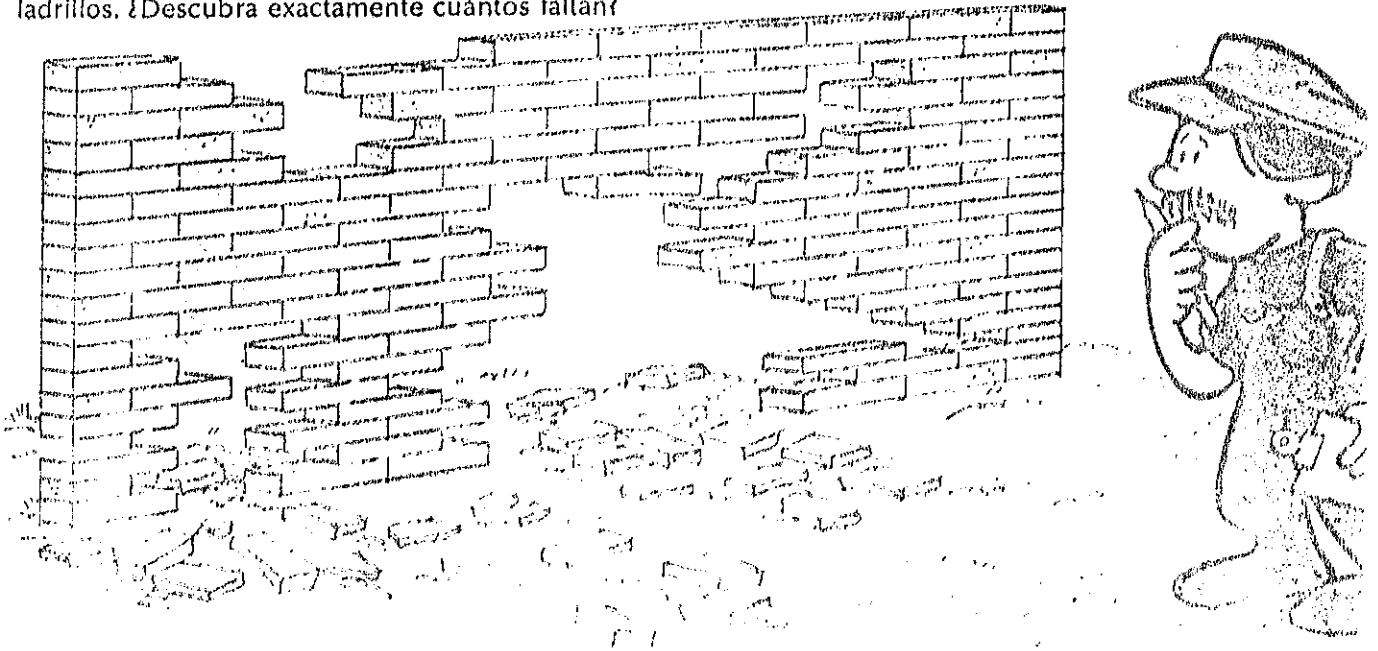 ladrillos. ¿Descubra exactamente cuántos faltan?